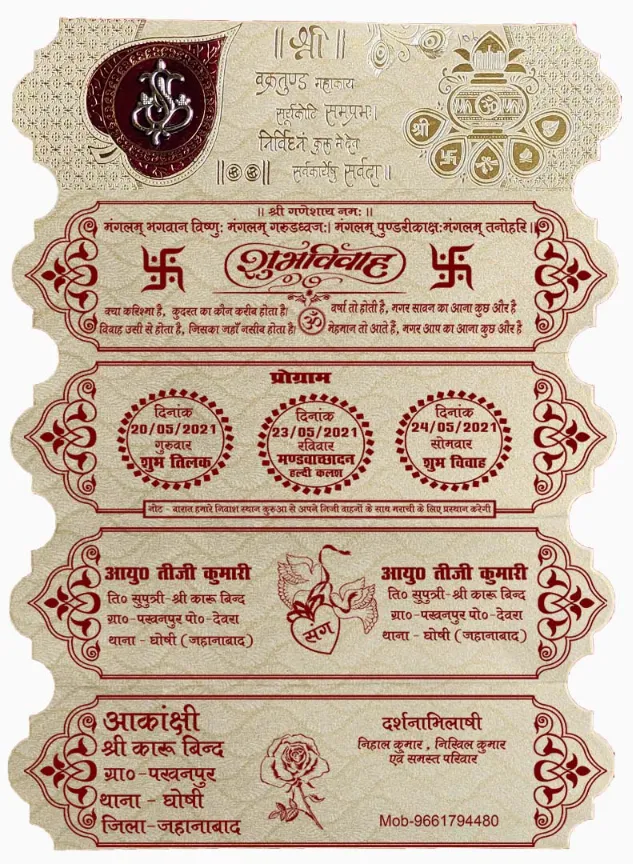 ॥ श्री ॥
वक्रतुण्ड महाकाय
सूर्यकोटि समप्रभः।
निर्विघ्नं कुरू मे देव
॥ॐॐ॥ सर्वकार्येषु सर्वदा॥
श्री
ॐ
॥ श्री गणेशाय नमः ॥
मंगलम् भगवान विष्णुः मंगलम् गरूडध्वजः। मंगलम् पुण्डरीकाक्षःमंगलम् तनोहरि॥
शुभविवाह
क्या करिश्मा है, कुदरत का कौन करीब होता है।
विवाह उसी से होता है, जिसका जहाँ नसीब होता है।
ॐ
वर्षा तो होती है, मगर सावन का आना कुछ और है
मेहमान तो आते हैं, मगर आप का आना कुछ और है
प्रोग्राम
दिनांक
20/05/2021
गुरुवार
शुभ तिलक
दिनांक
23/05/2021
रविवार
मण्डवाच्छादन
हल्दी कलश
दिनांक
24/05/2021
सोमवार
शुभ विवाह
नोट - बारात हमारे निवाश स्थान कुरुआ से अपने निजी वाहनों के साथ मराची के लिए प्रस्थान करेगी
आयु० तीजी कुमारी
ति० सुपुत्री-श्री कारू बिन्द
ग्रा०-पखनपुर पो०-देवरा
थाना - घोषी (जहानाबाद)
संग
आयु० तीजी कुमारी
ति० सुपुत्री-श्री कारू बिन्द
ग्रा०-पखनपुर पो०-देवरा
थाना - घोषी (जहानाबाद)
आकांक्षी
श्री कारू बिन्द
ग्रा०-पखनपुर
थाना - घोषी
जिला-जहानाबाद
दर्शनाभिलाषी
निहाल कुमार , निखिल कुमार
एवं समस्त परिवार
Mob-9661794480